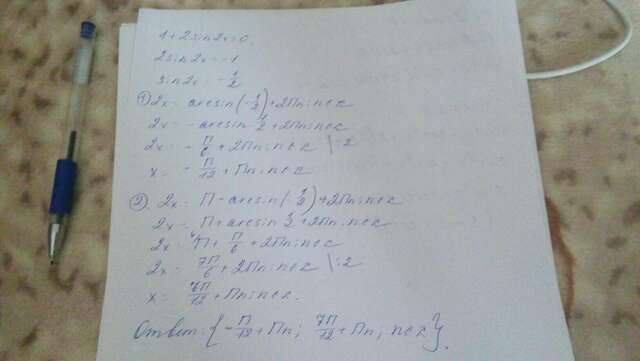 1+2sin2x=0.
2sin2x=-1
sin2x=-1/2
① 2x=arcsin(-1/2)+2Пn; n∈z
2x=-arcsin 1/2+2Пn; n∈z
2x=-П/6+2Пn; n∈z |:2
x=-П/12+Пn; n∈z
②. 2x=П-arcsin(-1/2)+2Пn; n∈z
2x=П+arcsin 1/2+2Пn; n∈z
2x=П+П/6+2Пn; n∈z
2x=7П/6+2Пn; n∈z |:2
x=7П/12+Пn; n∈z.
Ответ: {-П/12+Пn; 7П/12+Пn; n∈z}.